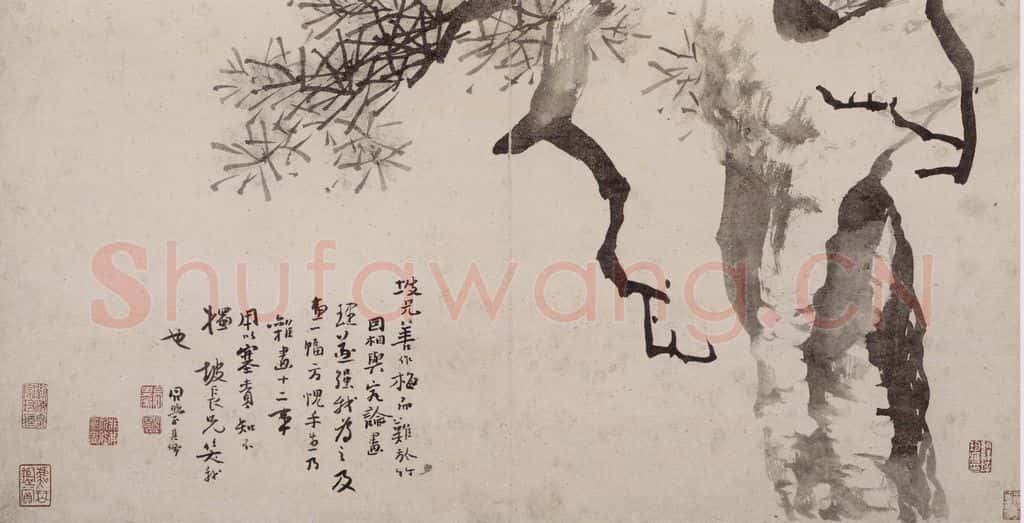 坡兄善作梅而難於竹
因相與究論畫
理遂強我為之及
畫一幅方愧手生乃
雜畫十二事
用以塞責知不
獨坡長兄笑我
也
同學
Shufawang.CN